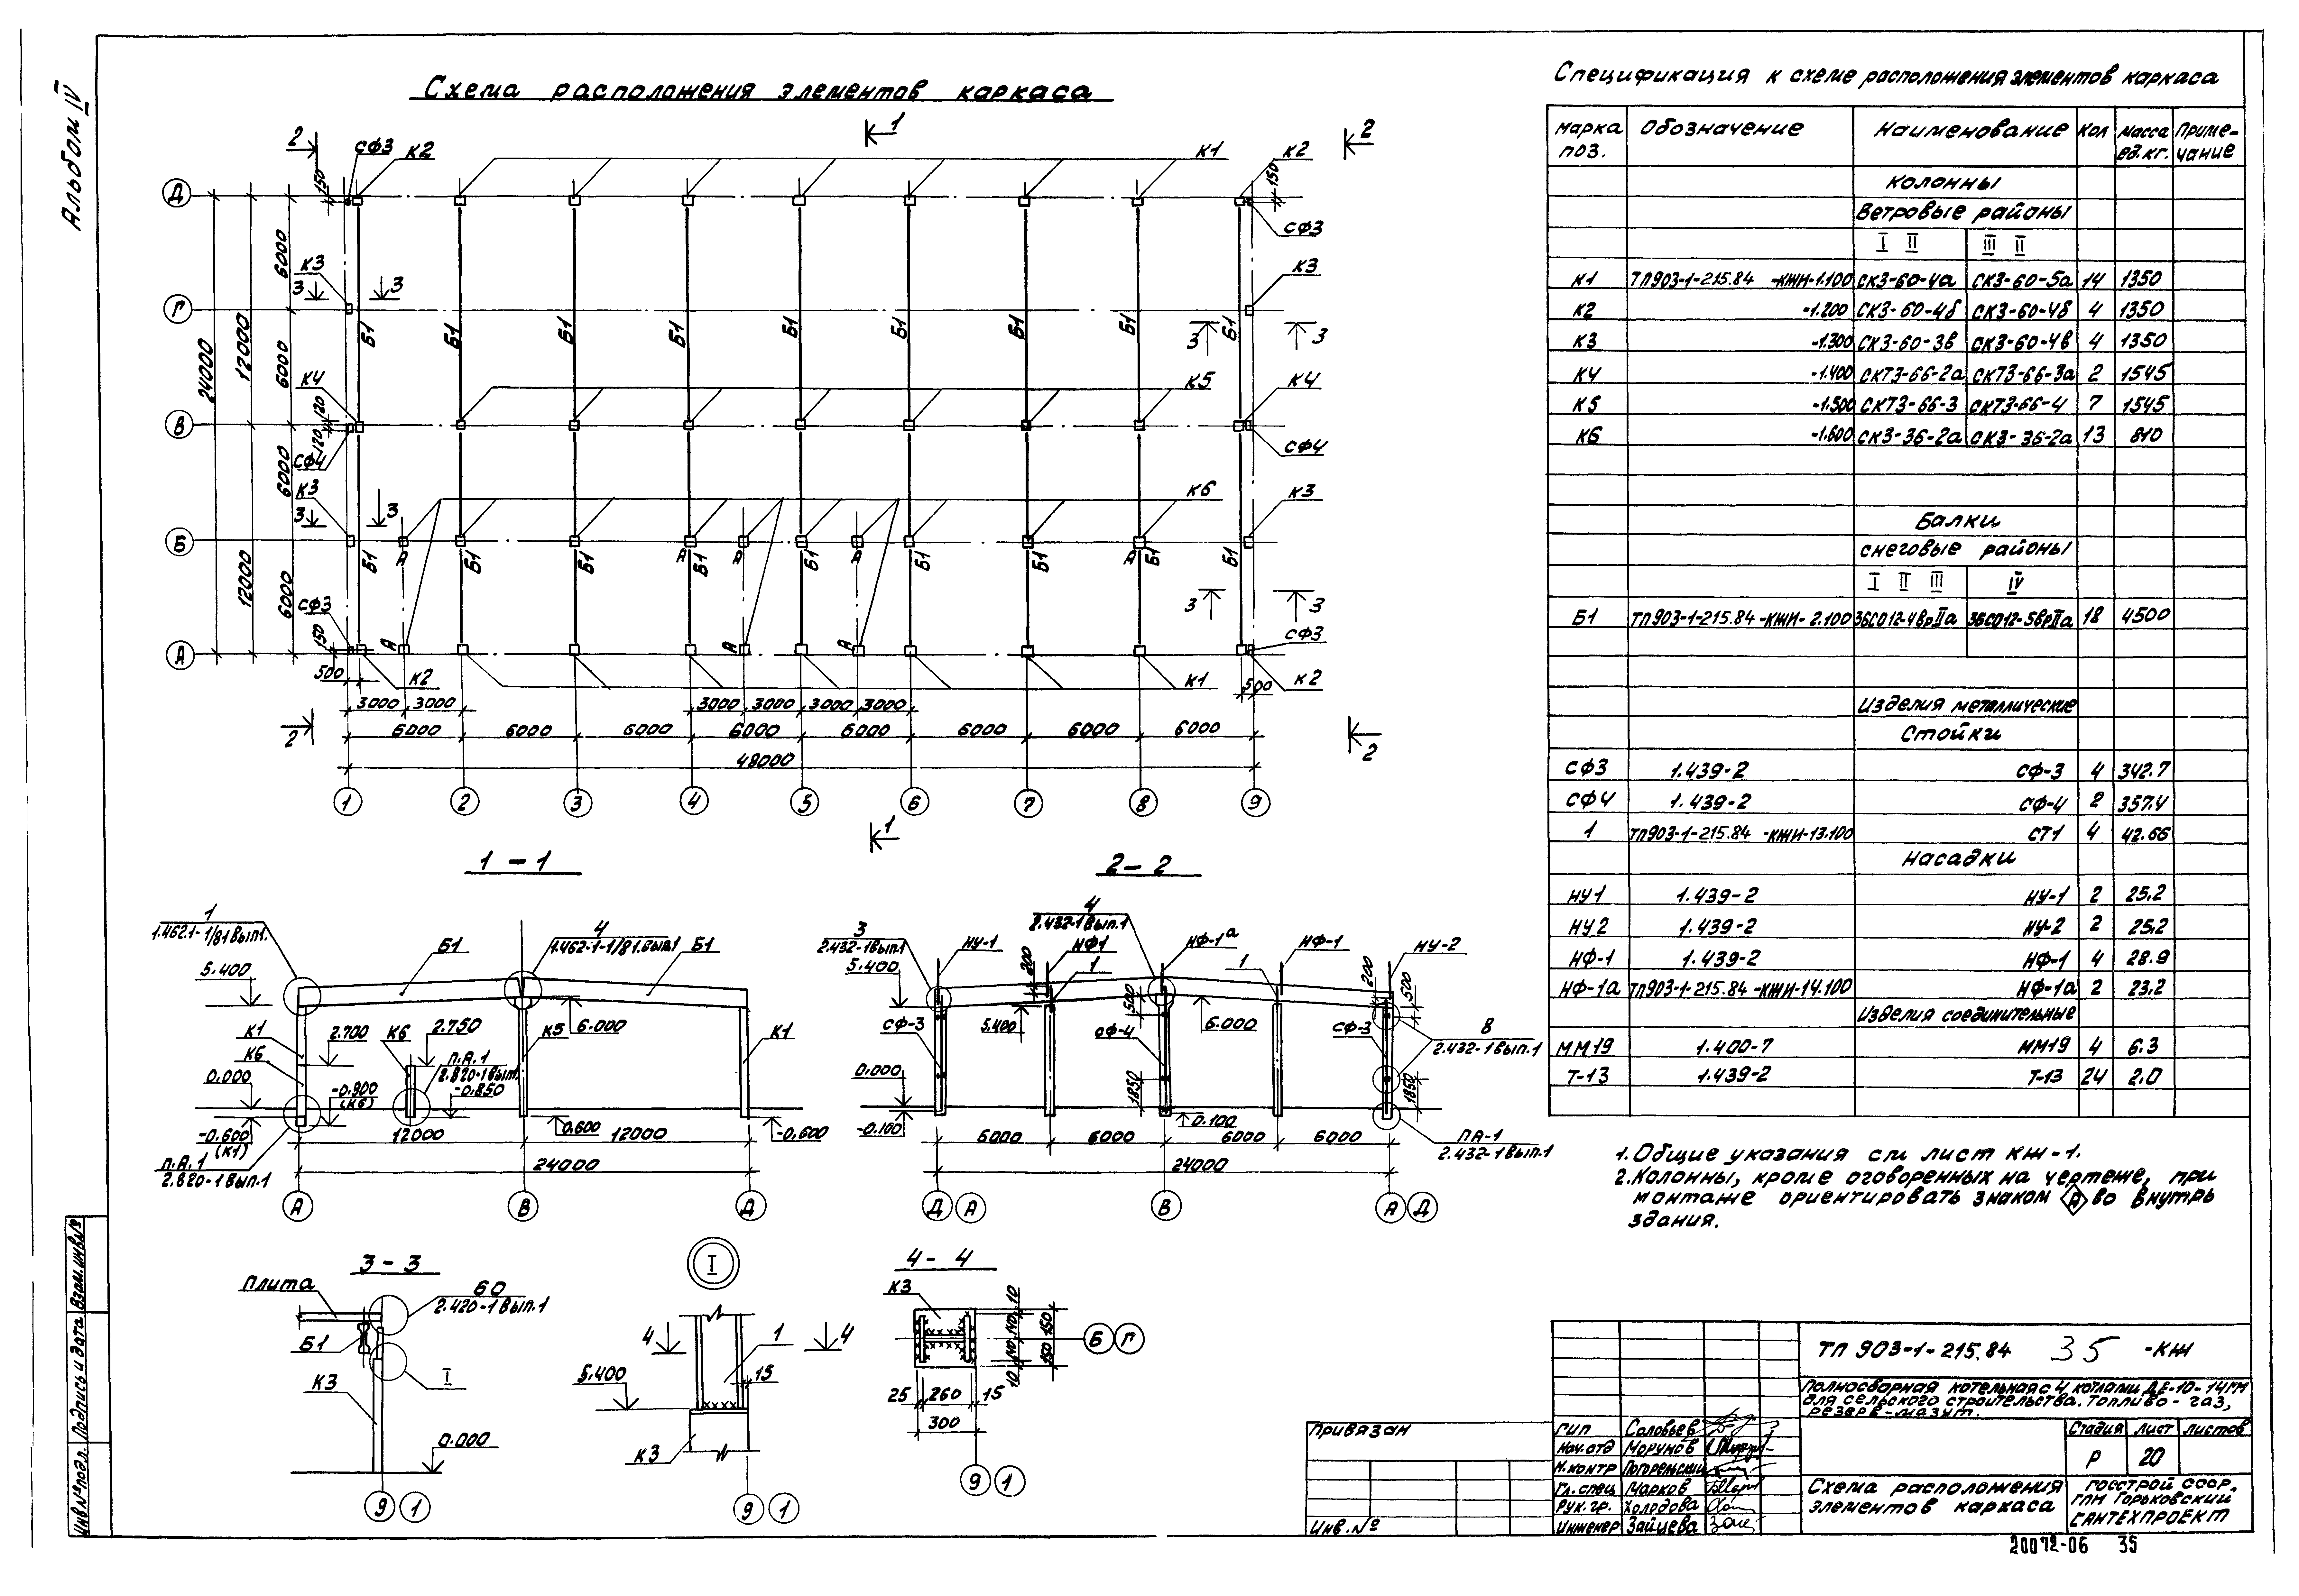 Альбом IV
Схема расположения элементов каркаса
2 СФ3 К2 1 К1 К2 2
Д 150 150
СФ3
К3 К3
3 3
Г
24000 12000 6000 6000
Б1 Б1 Б1 Б1 Б1 Б1 Б1 Б1 Б1
3 3
К4 К5 К4
В 120 120
СФ4 СФ4
К3 К6 К3
3 3
Б
А А А А А
Б1 Б1 Б1 Б1 Б1 Б1 Б1 Б1 Б1
12000 6000 6000
3 3
СФ3 СФ3
А 150
А А А
500 К2 К1 500 К2
3000 3000 3000 3000 3000 3000
2 6000 6000 6000 6000 6000 6000 6000 6000 2
48000
1 2 3 4 5 6 7 8 9
1
1-1
1
1.462.1-1/81 вып.1.
4
1.462-1-1/81.вып.1
Б1 Б1
5.400
К1 2.700 К6 2.750 К5 6.000 К1
К6
п.А.1
2.820-1 вып.1
0.000 -0.900 (К6) -0.850
-0.600 (К1) 0.600 -0.600
12000 12000
п.А.1
2.820-1 вып.1
24000
А В Д
2-2
3
2.432-1вып.1
4
2.432-1 вып.1
НУ-1 НФ1 НФ-1а НФ-1 НУ-2
5.400 200 1 1 200 500
500
СФ-3 5.400 СФ-4 6.000 СФ-3
8
2.432-1 вып.1
0.000 1850 1850
-0.100 0.100
6000 6000 6000 6000
ПА-1
2.432-1 вып.1
24000
Д А В А Д
3-3
Плита
60
2.420-1 вып.1
Б1
I
К3
0.000
9 1
I
4 1 4
15
5.400
К3
9 1
4-4
К3
10 140 140 10
150 150
Б Г
25 260 15
300
9 1
Спецификация к схеме расположения элементов каркаса
Марка поз. Обозначение Наименование Кол Масса ед.кг. Приме-чание
Колонны
Ветровые районы
I II III II
К1 ТП903-1-215.84 -КЖИ-1.100 СК3-60-4а СК3-60-5а 14 1350
К2 -1.200 СК3-60-4б СК3-60-4б 4 1350
К3 -1.300 СК3-60-3в СК3-60-4в 4 1350
К4 -1.400 СКТ3-66-2а СКТ3-66-3а 2 1545
К5 -1.500 СКТ3-66-3 СКТ3-66-4 7 1545
К6 -1.600 СК3-36-2а СК3-36-2а 13 810
Балки
снеговые районы
I II III IV
Б1 ТП903-1-215.84 -КЖИ- 2.100 3БСО12-4ВрIIа 3БСО12-5ВрIIа 18 4500
Изделия металлические
Стойки
СФ3 1.439-2 СФ-3 4 342.7
СФ4 1.439-2 СФ-4 2 357.4
1 ТП903-1-215.84 -КЖИ-13.100 СТ1 4 42.66
Насадки
НУ1 1.439-2 НУ-1 2 25.2
НУ2 1.439-2 НУ-2 2 25.2
НФ-1 1.439-2 НФ-1 4 28.9
НФ-1а ТП903-1-215.84 -КЖИ-14.100 НФ-1а 2 23.2
Изделия соединительные
ММ19 1.400-7 ММ19 4 6.3
Т-13 1.439-2 Т-13 24 2.0
1. Общие указания см лист КЖ-1.
2. Колонны, кроме оговоренных на чертеже, при
монтаже ориентировать знаком А во внутрь
здания.
ТП 903-1-215.84 35 -КЖ
Полносборная котельная с 4 котлами ДЕ-10-14ГМ
для сельского строительства. Топливо - газ,
резерв-мазут.
Стадия Лист Листов
Р 20
Схема расположения
элементов каркаса
Госстрой СССР,
ГПИ Горьковский
Сантехпроект
ГИП Соловьев
Нач.отд Морунов
Н.контр Погорельский
Гл.спец Марков
Рук.гр. Холодова
Инженер Зайцева
Привязан
Инв.№
Инв№подл. Подпись и дата Взам.инв№
20072-06 35